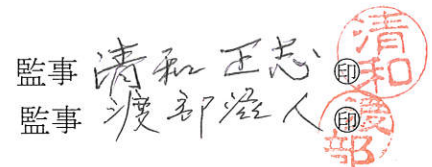 監事 清和正志 ㊞ 清和
監事 渡部澄人 ㊞ 渡部